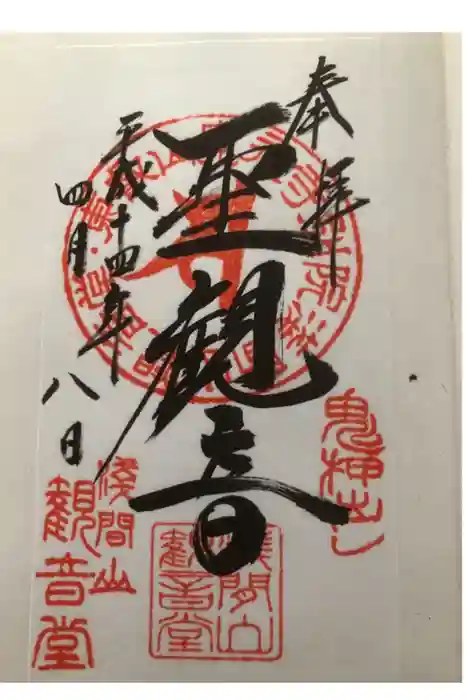 奉拝
聖観音
平成十四年
四月八日
鬼押出し
浅間山
観音堂
浅間山
観音堂